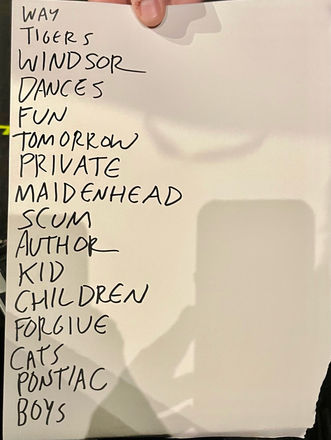 WAY
TIGERS
WINDSOR
DANCES
FUN
TOMORROW
PRIVATE
MAIDENHEAD
SCUM
AUTHOR
KID
CHILDREN
FORGIVE
CATS
PONTIAC
BOYS